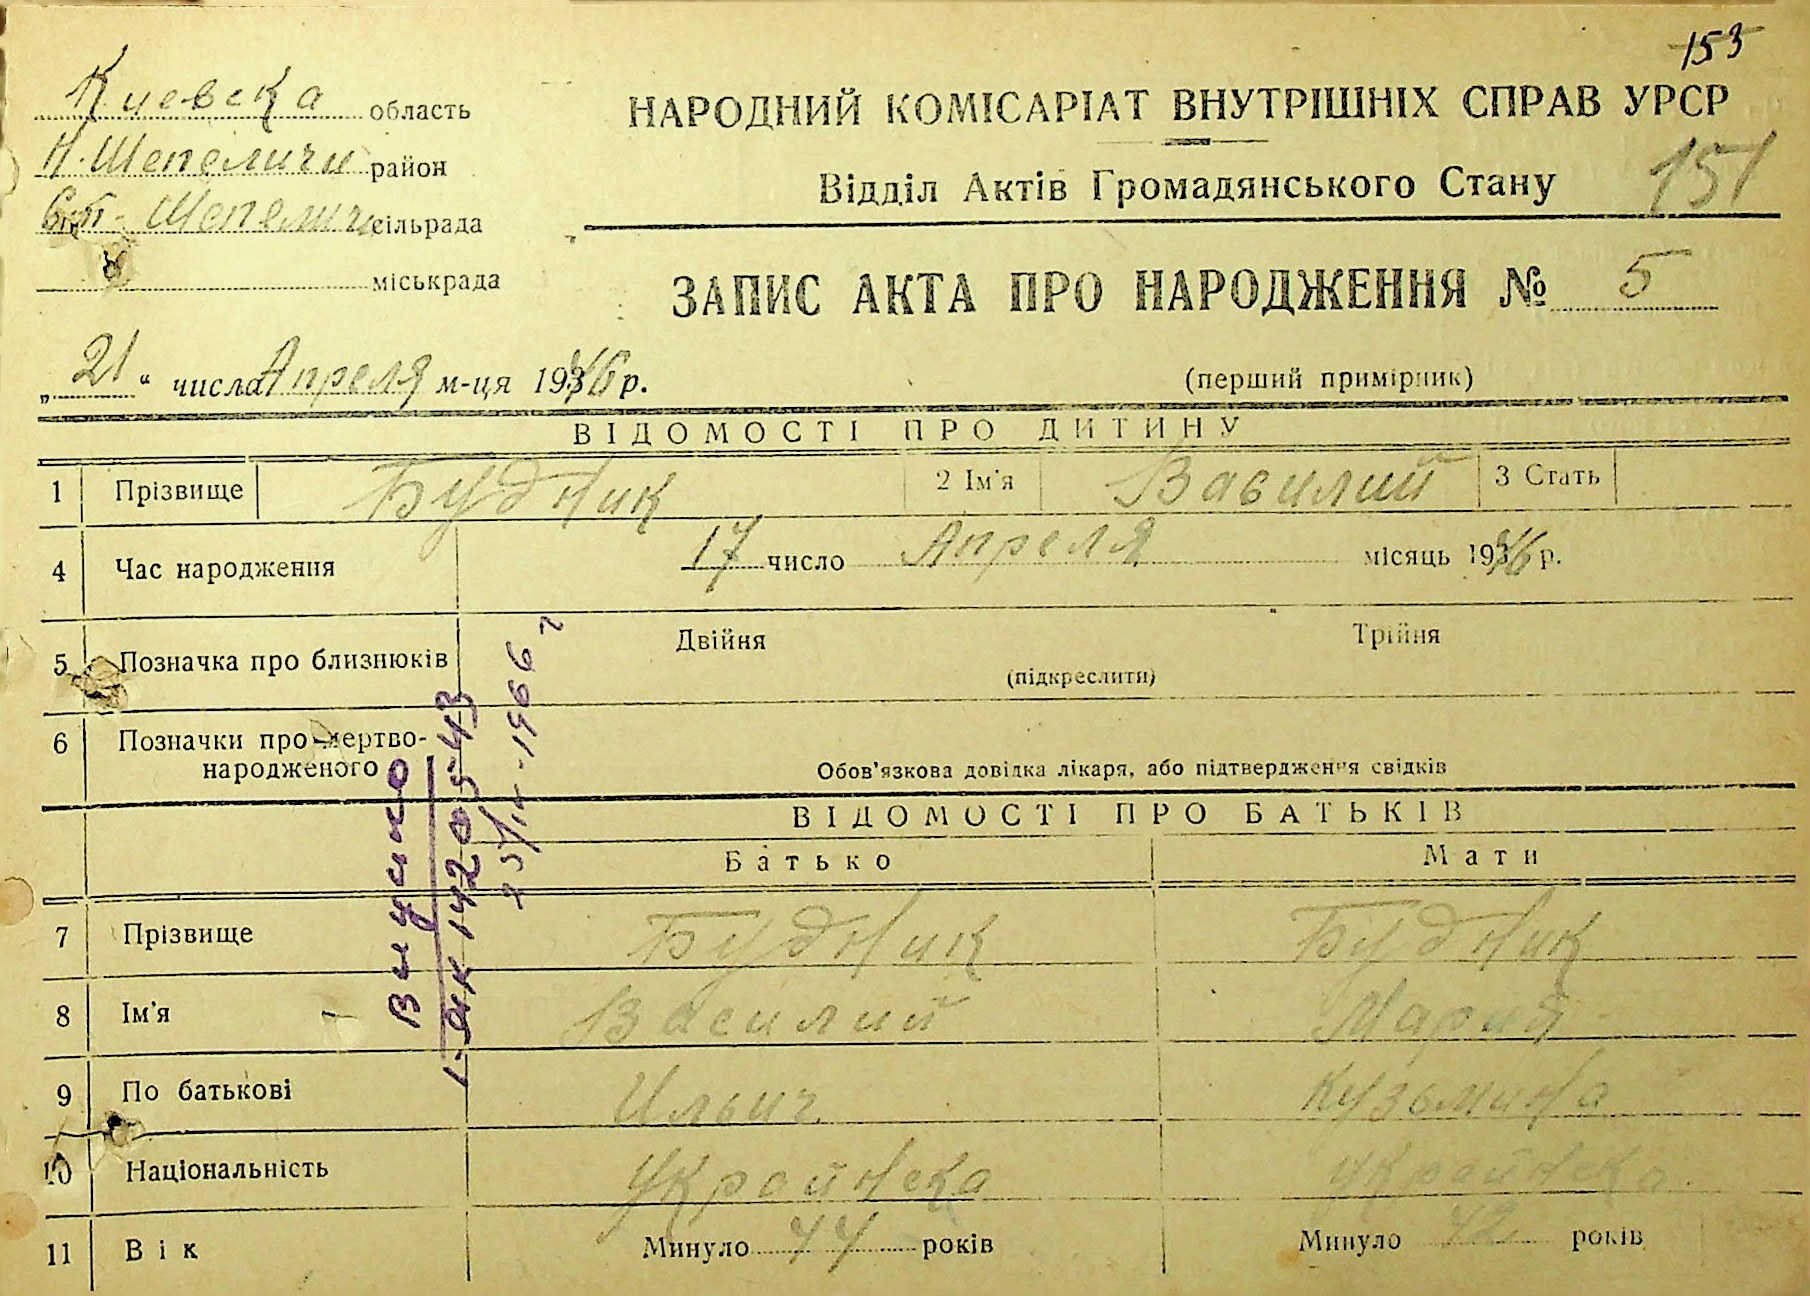 153
Киевска область
Н. Шепеличи район
Ст. Шепеличи сільрада
міськрада
НАРОДНИЙ КОМІСАРІАТ ВНУТРІШНІХ СПРАВ УРСР
Відділ Актів Громадянського Стану
151
ЗАПИС АКТА ПРО НАРОДЖЕННЯ № 5
„21“ числа Апреля м-ця 1946 р.
(перший примірник)
ВІДОМОСТІ ПРО ДИТИНУ
1 Прізвище Будник 2 Ім'я Василий 3 Стать
4 Час народження 17 число Апреля місяць 1946 р.
5 Позначка про близнюків Двійня Трійня
(підкреслити)
6 Позначки про мертво-
народженого
Обов'язкова довідка лікаря, або підтвердження свідків
ВІДОМОСТІ ПРО БАТЬКІВ
Батько Мати
7 Прізвище Будник Будник
8 Ім'я Василий Мария
9 По батькові Ильич Кузьмина
10 Національність Украйнска Украйнска
11 Вік Минуло 44 років Минуло 42 років
1420543
1966 г